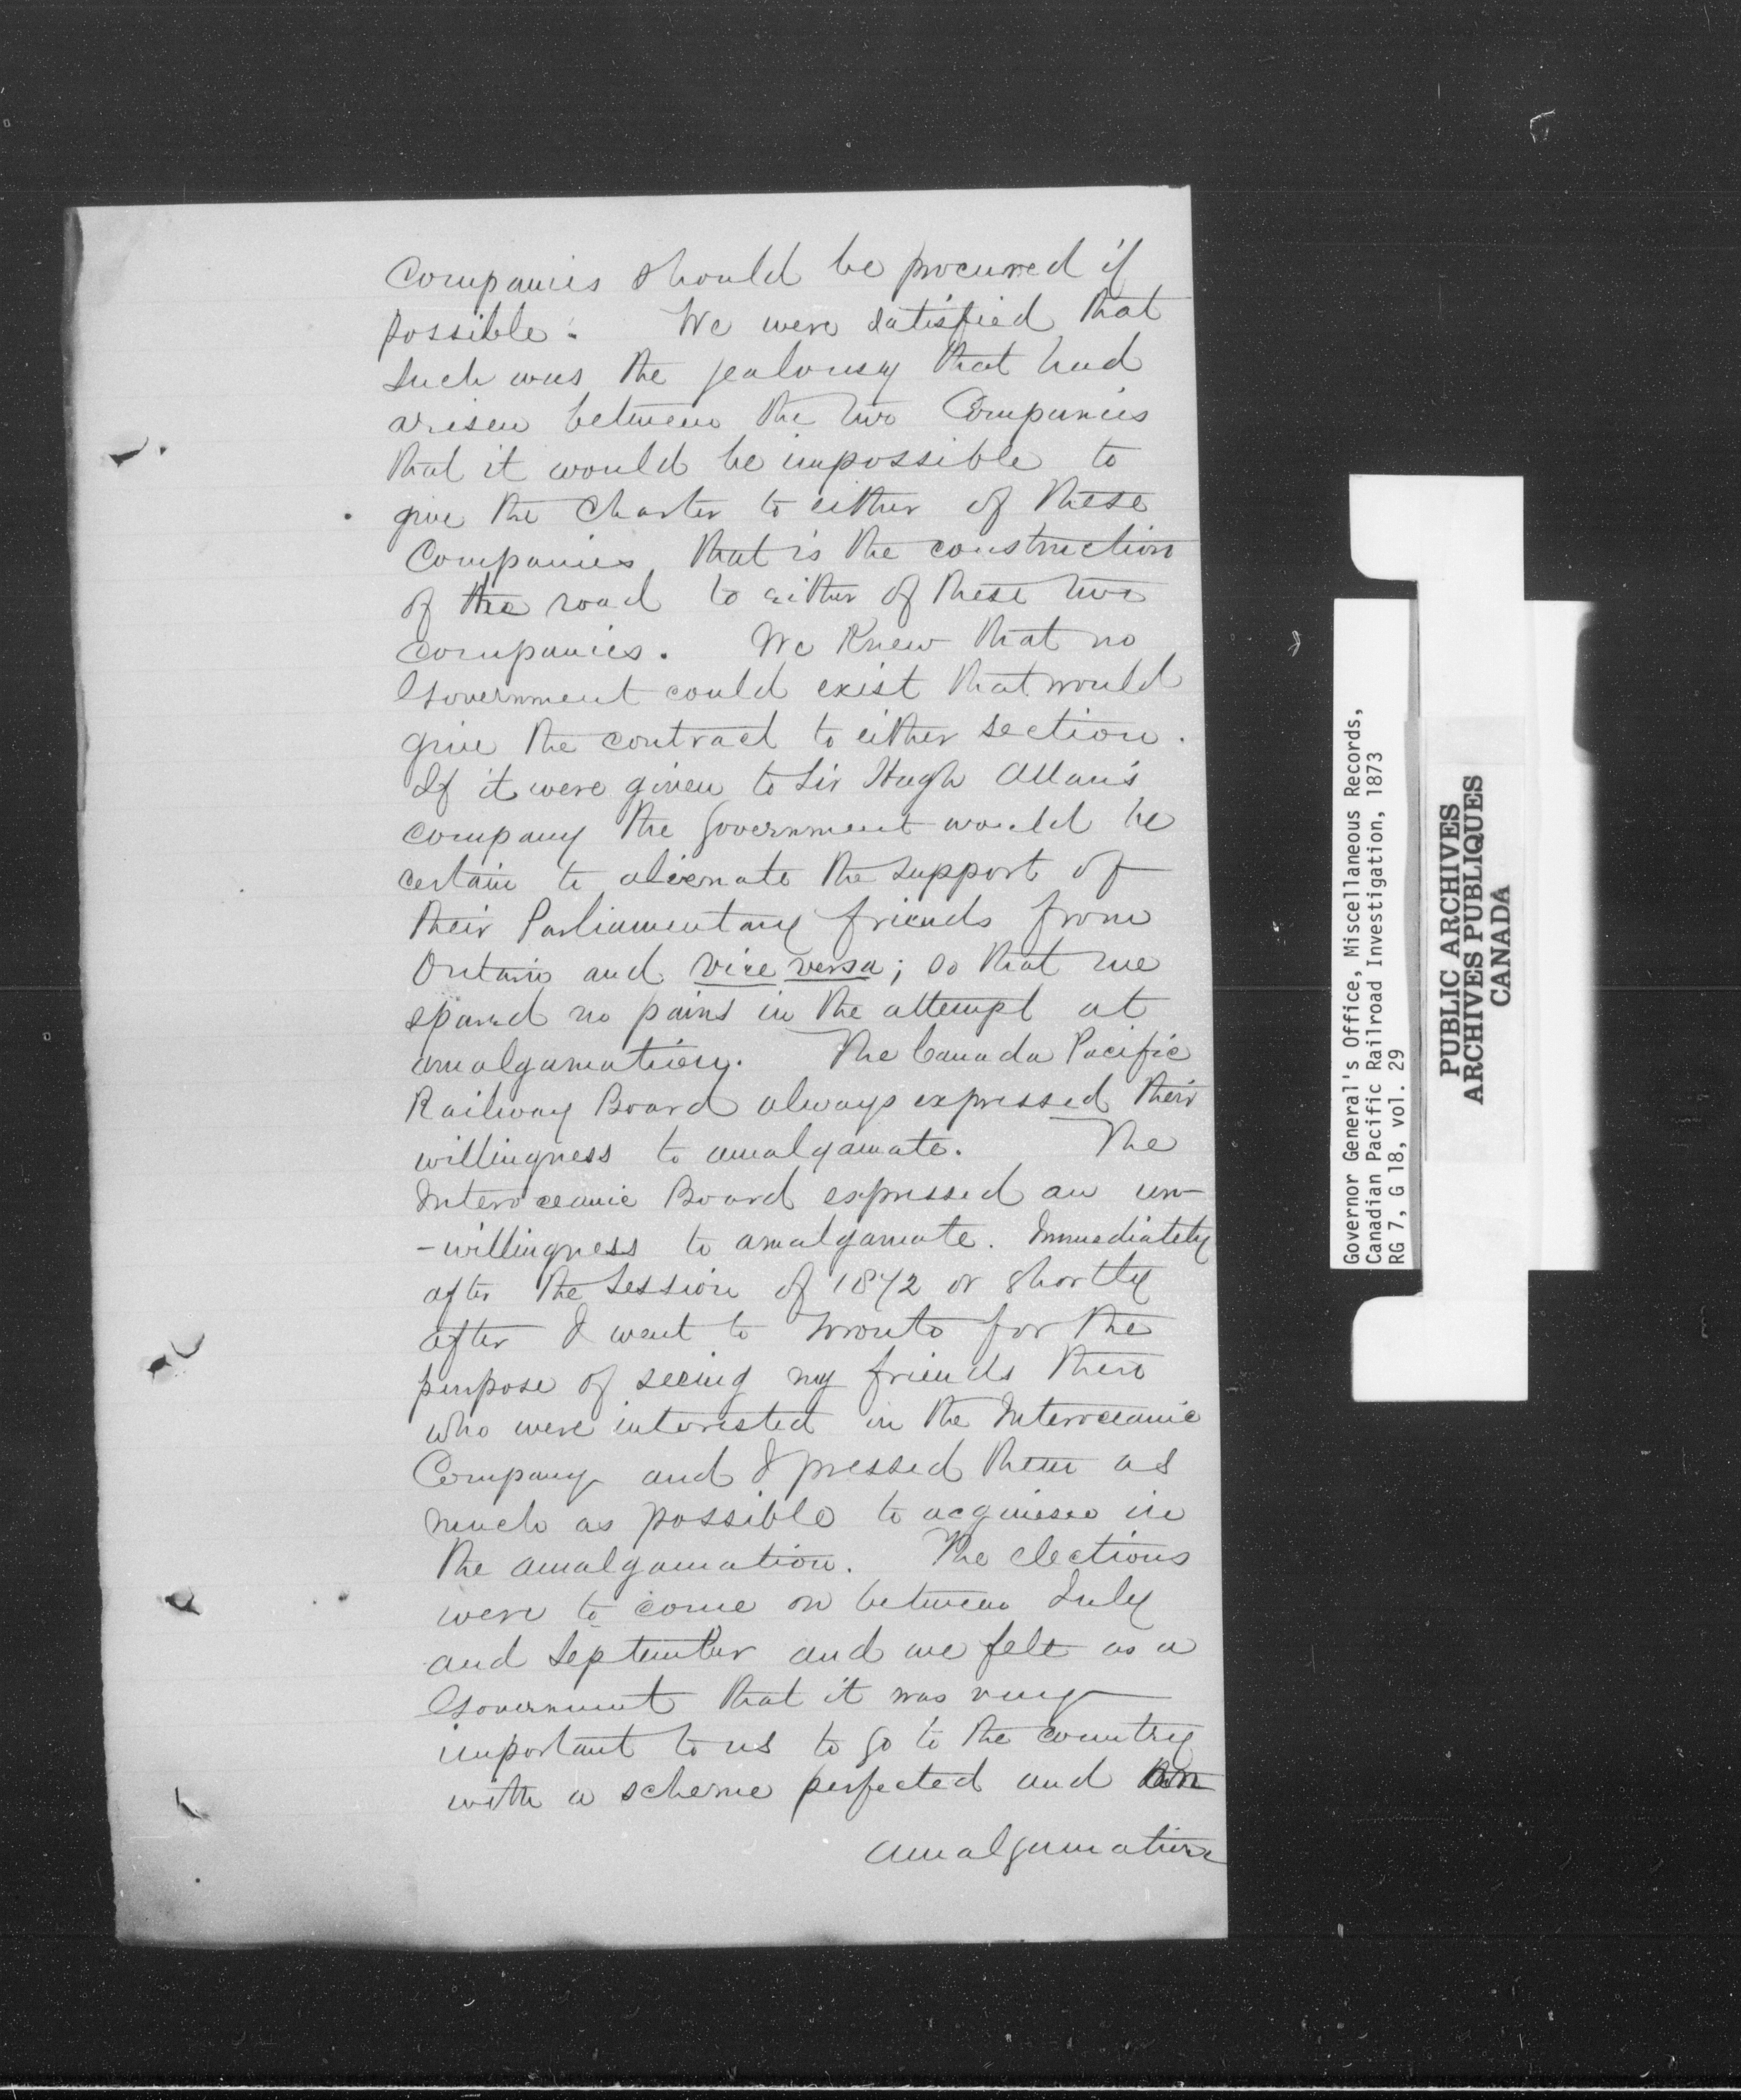 Companies should be procured if
possible. We were satisfied that
such was the jealousy that had
arisen between the two Companies
that it would be impossible to
give the Charter to either of these
Companies, that is the construction
of the road to either of these two
companies. We knew that no
Government could exist that would
give the contract to either section.
If it were given to Sir Hugh Allan's
company the Government would be
certain to alienate the support of
their Parliamentary friends from
Ontario and vice versa; so that we
spared no pains in the attempt at
amalgamation. The Canada Pacific
Railway Board always expressed their
willingness to amalgamate. The
Interoceanic Board expressed an un-
-willingness to amalgamate. Immediately
after the Session of 1872 or shortly
after I went to Toronto for the
purpose of seeing my friends there
who were interested in the Interoceanic
Company and I pressed them as
much as possible to acquiesce in
the amalgamation. The elections
were to come on between July
and September and we felt as a
Government that it was very
important to us to go to the country
with a scheme perfected and an
amalgamation
Governor General's Office, Miscellaneous Records,
Canadian Pacific Railroad Investigation, 1873
RG 7, G 18, vol. 29
PUBLIC ARCHIVES
ARCHIVES PUBLIQUES
CANADA